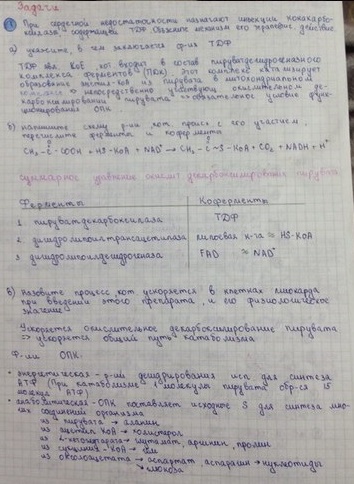 Задачи
① При сердечной недостаточности назначают инъекции кокарбо-
ксилазы, содержащей ТДФ. Объясните механизм его терапевт. действие
а) укажите, в чем заключается ф-ия ТДФ
ТДФ явл. Коф, кот входит в состав пируватдегидрогеназного
комплекса ферментов (ПДК). Этот комплекс катализирует
образование ацетил-КоА из пирувата в митохондриальном
и непосредственно участвующ. окислительном де-
карбоксилировании пирувата обязательное условие функ-
ционирование ОПК.
б) напишите схему р-ии, кот. происх с его участием,
перечислите ферменты и коферменты
CH₃-C-COOH + HS-KoA + NAD⁺ → CH₃-C~S-KoA + CO₂ + NADH + H⁺
O O
суммарное уравнение окислит декарбоксилирования пирувата
Ферменты Коферменты
1. пируватдекарбоксилаза ТДФ
2. дигидролипоилтрансацетилаза липоевая к-та HS-KoA
3 дигидролипоилдегидрогеназа FAD NAD⁺
в) Назовите процесс, кот ускоряется в клетках миокарда
при введении этого препарата, и его физиологическое
значение
Ускоряется окислительное декарбоксилирование пирувата
⇒ ускоряется общий путь катаболизма
Ф-ии ОПК.
• энергетическая - р-ии дегидрирования исп для синтеза
АТФ (При катаболизме 1 молекулы пирувата обр-ся 15
молекул АТФ)
• анаболитическая - ОПК поставляет исходные S для синтеза мно-
гих соединений организма
из пирувата → аланин
из ацетил КоА → холестерол
из α-кетоглутарата → глутамат, аргинин, пролин
из сукцинил-КоА → гем
из оксалоацетата → аспартат, аспарагин → нуклеотиды
глюкоза